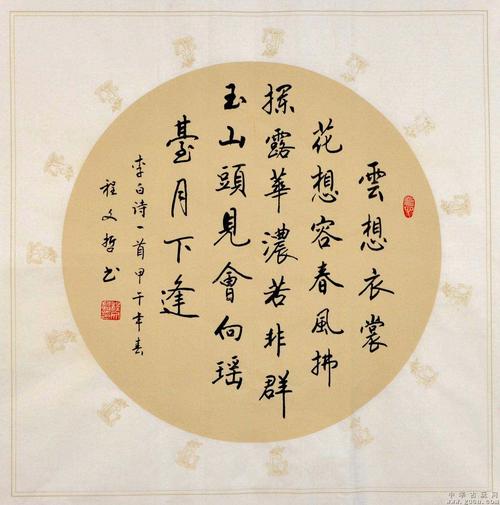 雲想衣裳
花想容春風拂
探露華濃若非群
玉山頭見會向瑶
臺月下逢
李白诗一首甲午年春
程文哲书
中华古玩网
www.gucn.com